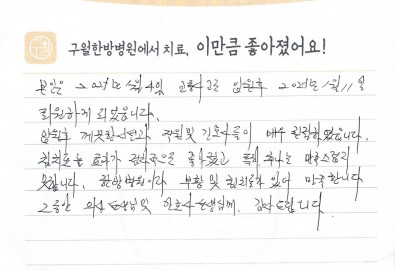 구월한방병원에서 치료, 이만큼 좋아졌어요!
본인은 2025년 5월4일 교통사고로 입원후 2025년 5월11일
퇴원하게 되었습니다.
입원후 깨끗한 직원 및 간호사들이 매우 친절하였습니다.
침치료는 효과가 좋았고 특히 만족스럽지
못합니다. 한방병원이라 부황 및 침치료가 있어 만족합니다
그동안 의사선생님 및 간호사선생님께 감사드립니다.